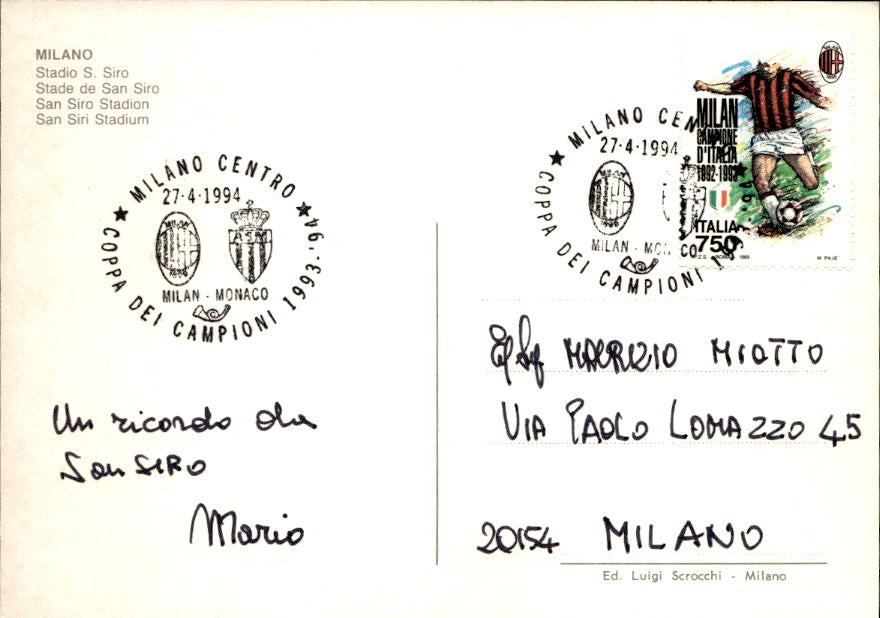 MILANO
Stadio S. Siro
Stade de San Siro
San Siro Stadion
San Siri Stadium
MILANO CENTRO
27·4·1994
MILAN
1896
A S M
MILAN - MONACO
COPPA DEI CAMPIONI 1993·'94
MILANO CEN
27·4·1994
1896
MILAN - MON CO
COPPA DEI CAMPIONI 1993·'94
MILAN
CAMPIONE
D'ITALIA
1992-1993
ITALIA
750
M. PAJE'
Un ricordo da
San SIRO
Mario
MAURIZIO MIOTTO
VIA PAOLO LOMAZZO 45
20154 MILANO
Ed. Luigi Scrocchi - Milano